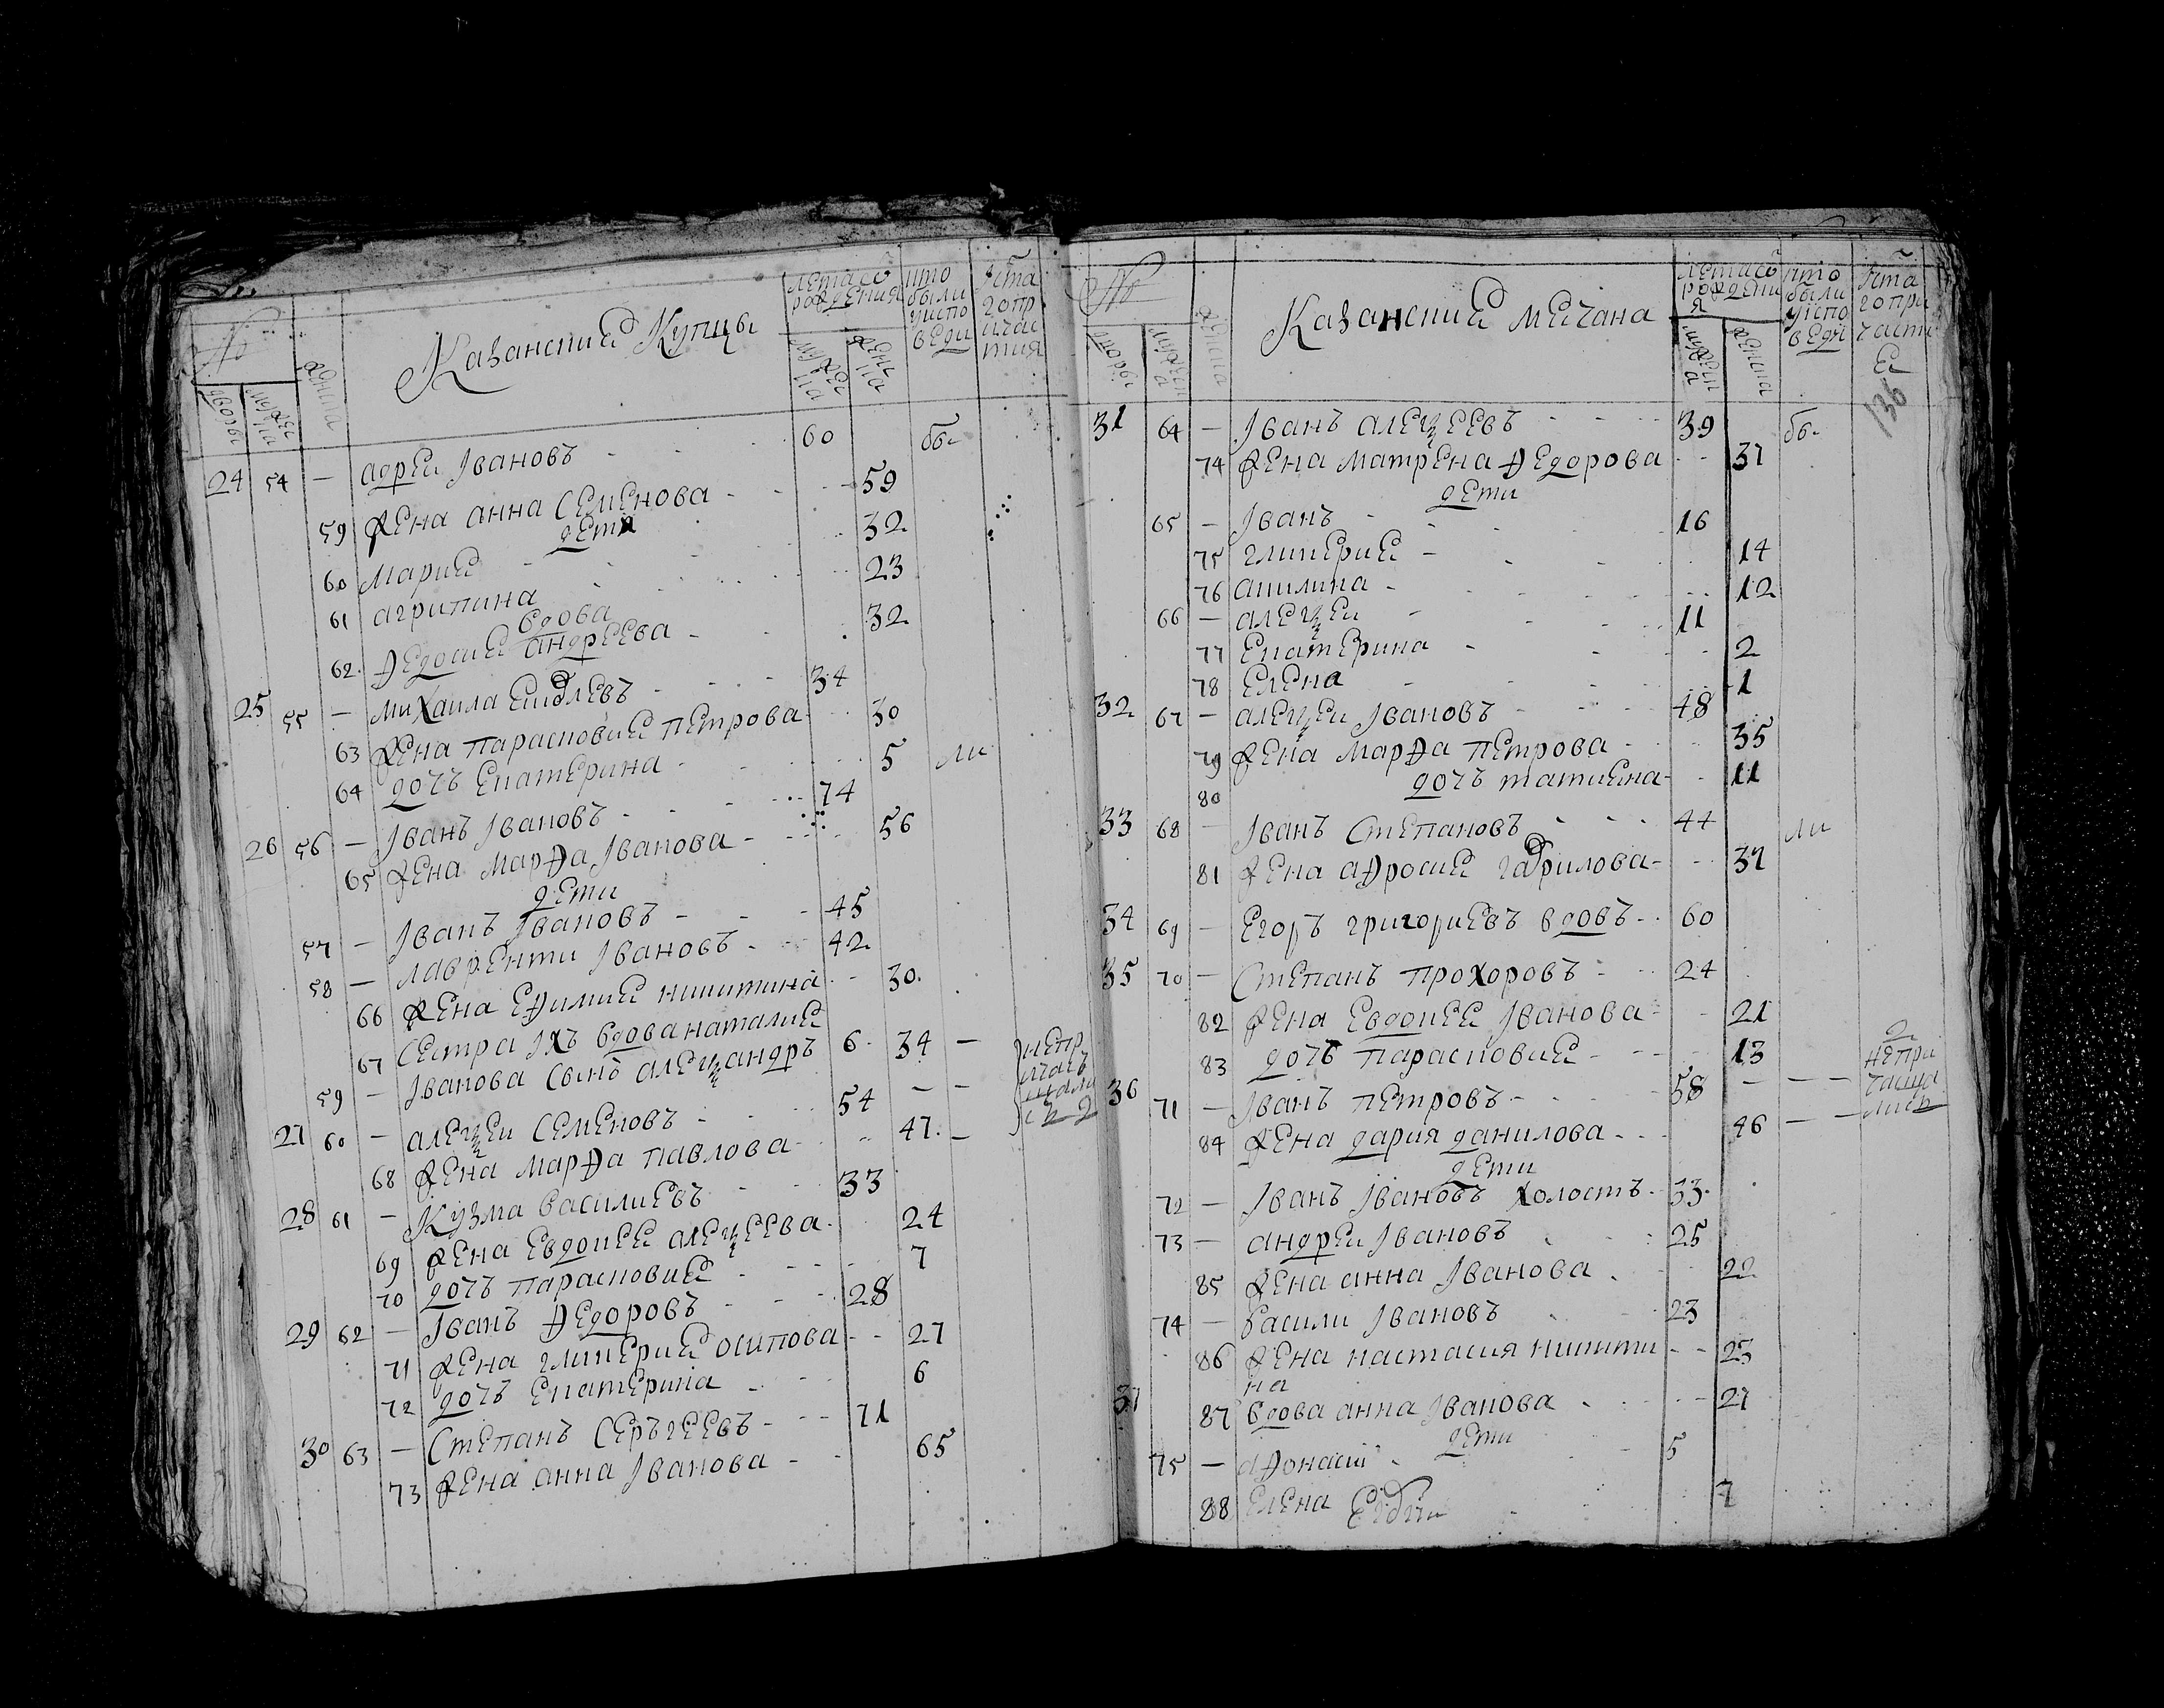 №
дворы
мужеска
женска
Казанскиѣ Купцы
лета сѡ рождения
мужеска
женска
кто были у исповеди
24 54 — адреи Ивановъ 60 бы
59 жена анна Семенова 59
дети
60 Мариѣ 32
61 агрипина 23
вдова
62 Ѳедосиѣ андреева 32
25 55 — михаила 34
63 жена парасковиѣ петрова 30
64 дочъ Екатерина 5 ли
26 56 — Иванъ Ивановъ 74
65 жена марѲа Иванова 56
дети
57 — Иванъ Ивановъ 45
58 — лаврѣнти Ивановъ 42
66 жена еѲимиѣ никитина 30
67 Сестра ихъ вдова наталиѣ
59 — Иванова Сынъ алеѯандръ 6 34 —
27 60 — алеѯеи Семеновъ 54 — —
68 жена марѲа павлова 47 —
28 61 — Кузма василиевъ 33
69 жена Евдокеѣ алеѯеева 24
70 дочъ парасковиѣ 7
29 62 — Иванъ Ѳедоровъ 28
71 жена гликериѣ осипова 27
72 дочъ Екатерина 6
30 63 — Степанъ Серъгеевъ 71
73 жена анна Иванова 65
№
дворы
мужеска
женска
Казанскиѣ мѣчана
лета сѡ рождения
мужеска
женска
кто были у исповеди
136
31 64 — Иванъ алеѯеевъ 39 бы
74 жена матрена Ѳедорова 37
дети
65 — Иванъ 16
75 гликериѣ 14
76 акилина 12
66 — алеѯеи 11
77 Екатерина 2
78 Елена 1
32 67 — алеѯеи Ивановъ 48
79 жена марѲа петрова 35
80 дочъ татиена 11
33 68 — Иванъ Степановъ 44 ли
81 жена аѲросиѣ гаврилова 37
34 69 — Егоръ григориевъ вдовъ 60
35 70 — Степанъ прохоровъ 24
82 жена Евдокеѣ Иванова 21
83 дочъ парасковиѣ 13
36 71 — Иванъ петровъ 58 — — 2 непричащались
84 жена дария данилова 46 — —
дети
72 — Иванъ Ивановъ холостъ 33
73 — андреи Ивановъ 25
85 жена анна Иванова 22
74 — василии Ивановъ 23
86 жена настасия никити 25
на
37 87 вдова анна Иванова 27
дети
75 — аѲонасии 5
88 Елена 7